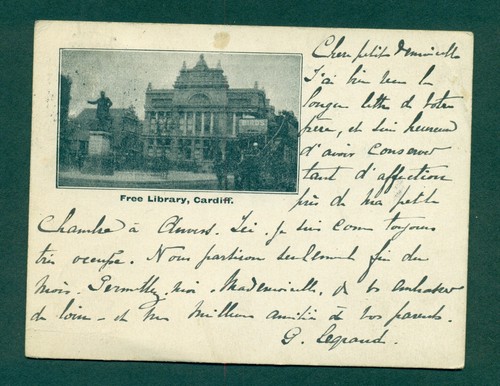 Chère petite Demoiselle
J'ai bien reçu la
longue lettre de votre
père, et suis heureux
d'avoir conservé
tant d'affection
près de ma petite
Free Library, Cardiff.
Chambre à Anvers. Ici, je suis comme toujours
très occupé. Nous partirons seulement fin du
mois. Permettez-moi, Mademoiselle, de vous embrasser
de loin - et mes meilleures amitiés à vos parents.
G. Legrand.